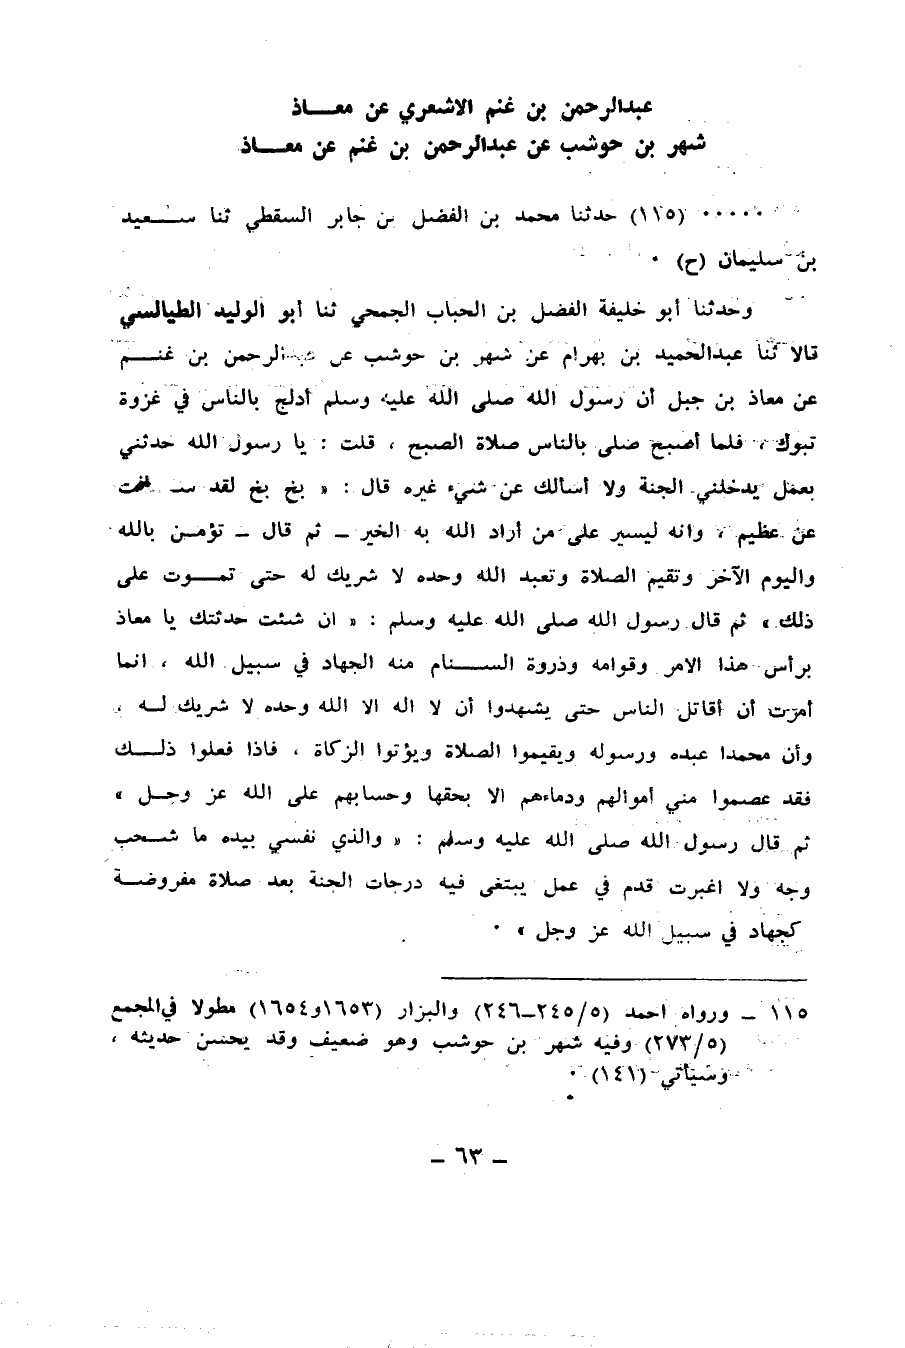 عبدالرحمن بن غنم الاشعري عن معـــاذ
شهر بن حوشب عن عبدالرحمن بن غنم عن معـــاذ
٠٠٠٠٠ (١١٥) حدثنا محمد بن الفضل بن جابر السقطي ثنا سـعيد
بن سليمان (ح) ٠
وحدثنا أبو خليفة الفضل بن الحباب الجمحي ثنا أبو الوليد الطيالسي
قالا ثنا عبدالحميد بن بهرام عن شهر بن حوشب عن عبدالرحمن بن غنـــم
عن معاذ بن جبل أن رسول الله صلى الله عليه وسلم أدلج بالناس في غزوة
تبوك ، فلما أصبح صلى بالناس صلاة الصبح ، قلت : يا رسول الله حدثني
بعمل يدخلني الجنة ولا أسالك عن شيء غيره قال : « بخ بخ لقد سـألت
عن عظيم ، وانه ليسير على من أراد الله به الخير ـ ثم قال ـ تؤمـن بالله
واليوم الآخر وتقيم الصلاة وتعبد الله وحده لا شريك له حتى تمـــوت على
ذلك » ثم قال رسول الله صلى الله عليه وسلم : « ان شئت حدثتك يا معاذ
برأس هذا الامر وقوامه وذروة الســـنام منه الجهاد في سبيل الله ، انما
أمرت أن أقاتل الناس حتى يشهدوا أن لا اله الا الله وحده لا شريك لـه ،
وأن محمدا عبده ورسوله ويقيموا الصلاة ويؤتوا الزكاة ، فاذا فعلوا ذلــك
فقد عصموا مني أموالهم ودماءهم الا بحقها وحسابهم على الله عز وجـل »
ثم قال رسول الله صلى الله عليه وسلم : « والذي نفسي بيده ما شـحب
وجه ولا اغبرت قدم في عمل يبتغى فيه درجات الجنة بعد صلاة مفروضـة
كجهاد في سبيل الله عز وجل » ٠
١١٥ ـ ورواه احمد (٢٤٥/٥ـ٢٤٦) والبزار (١٦٥٣و١٦٥٤) مطولا في المجمع
(٢٧٣/٥) وفيه شهر بن حوشب وهو ضعيف وقد يحسن حديثه ،
وسيأتي (١٤١) ٠
ـ ٦٣ ـ